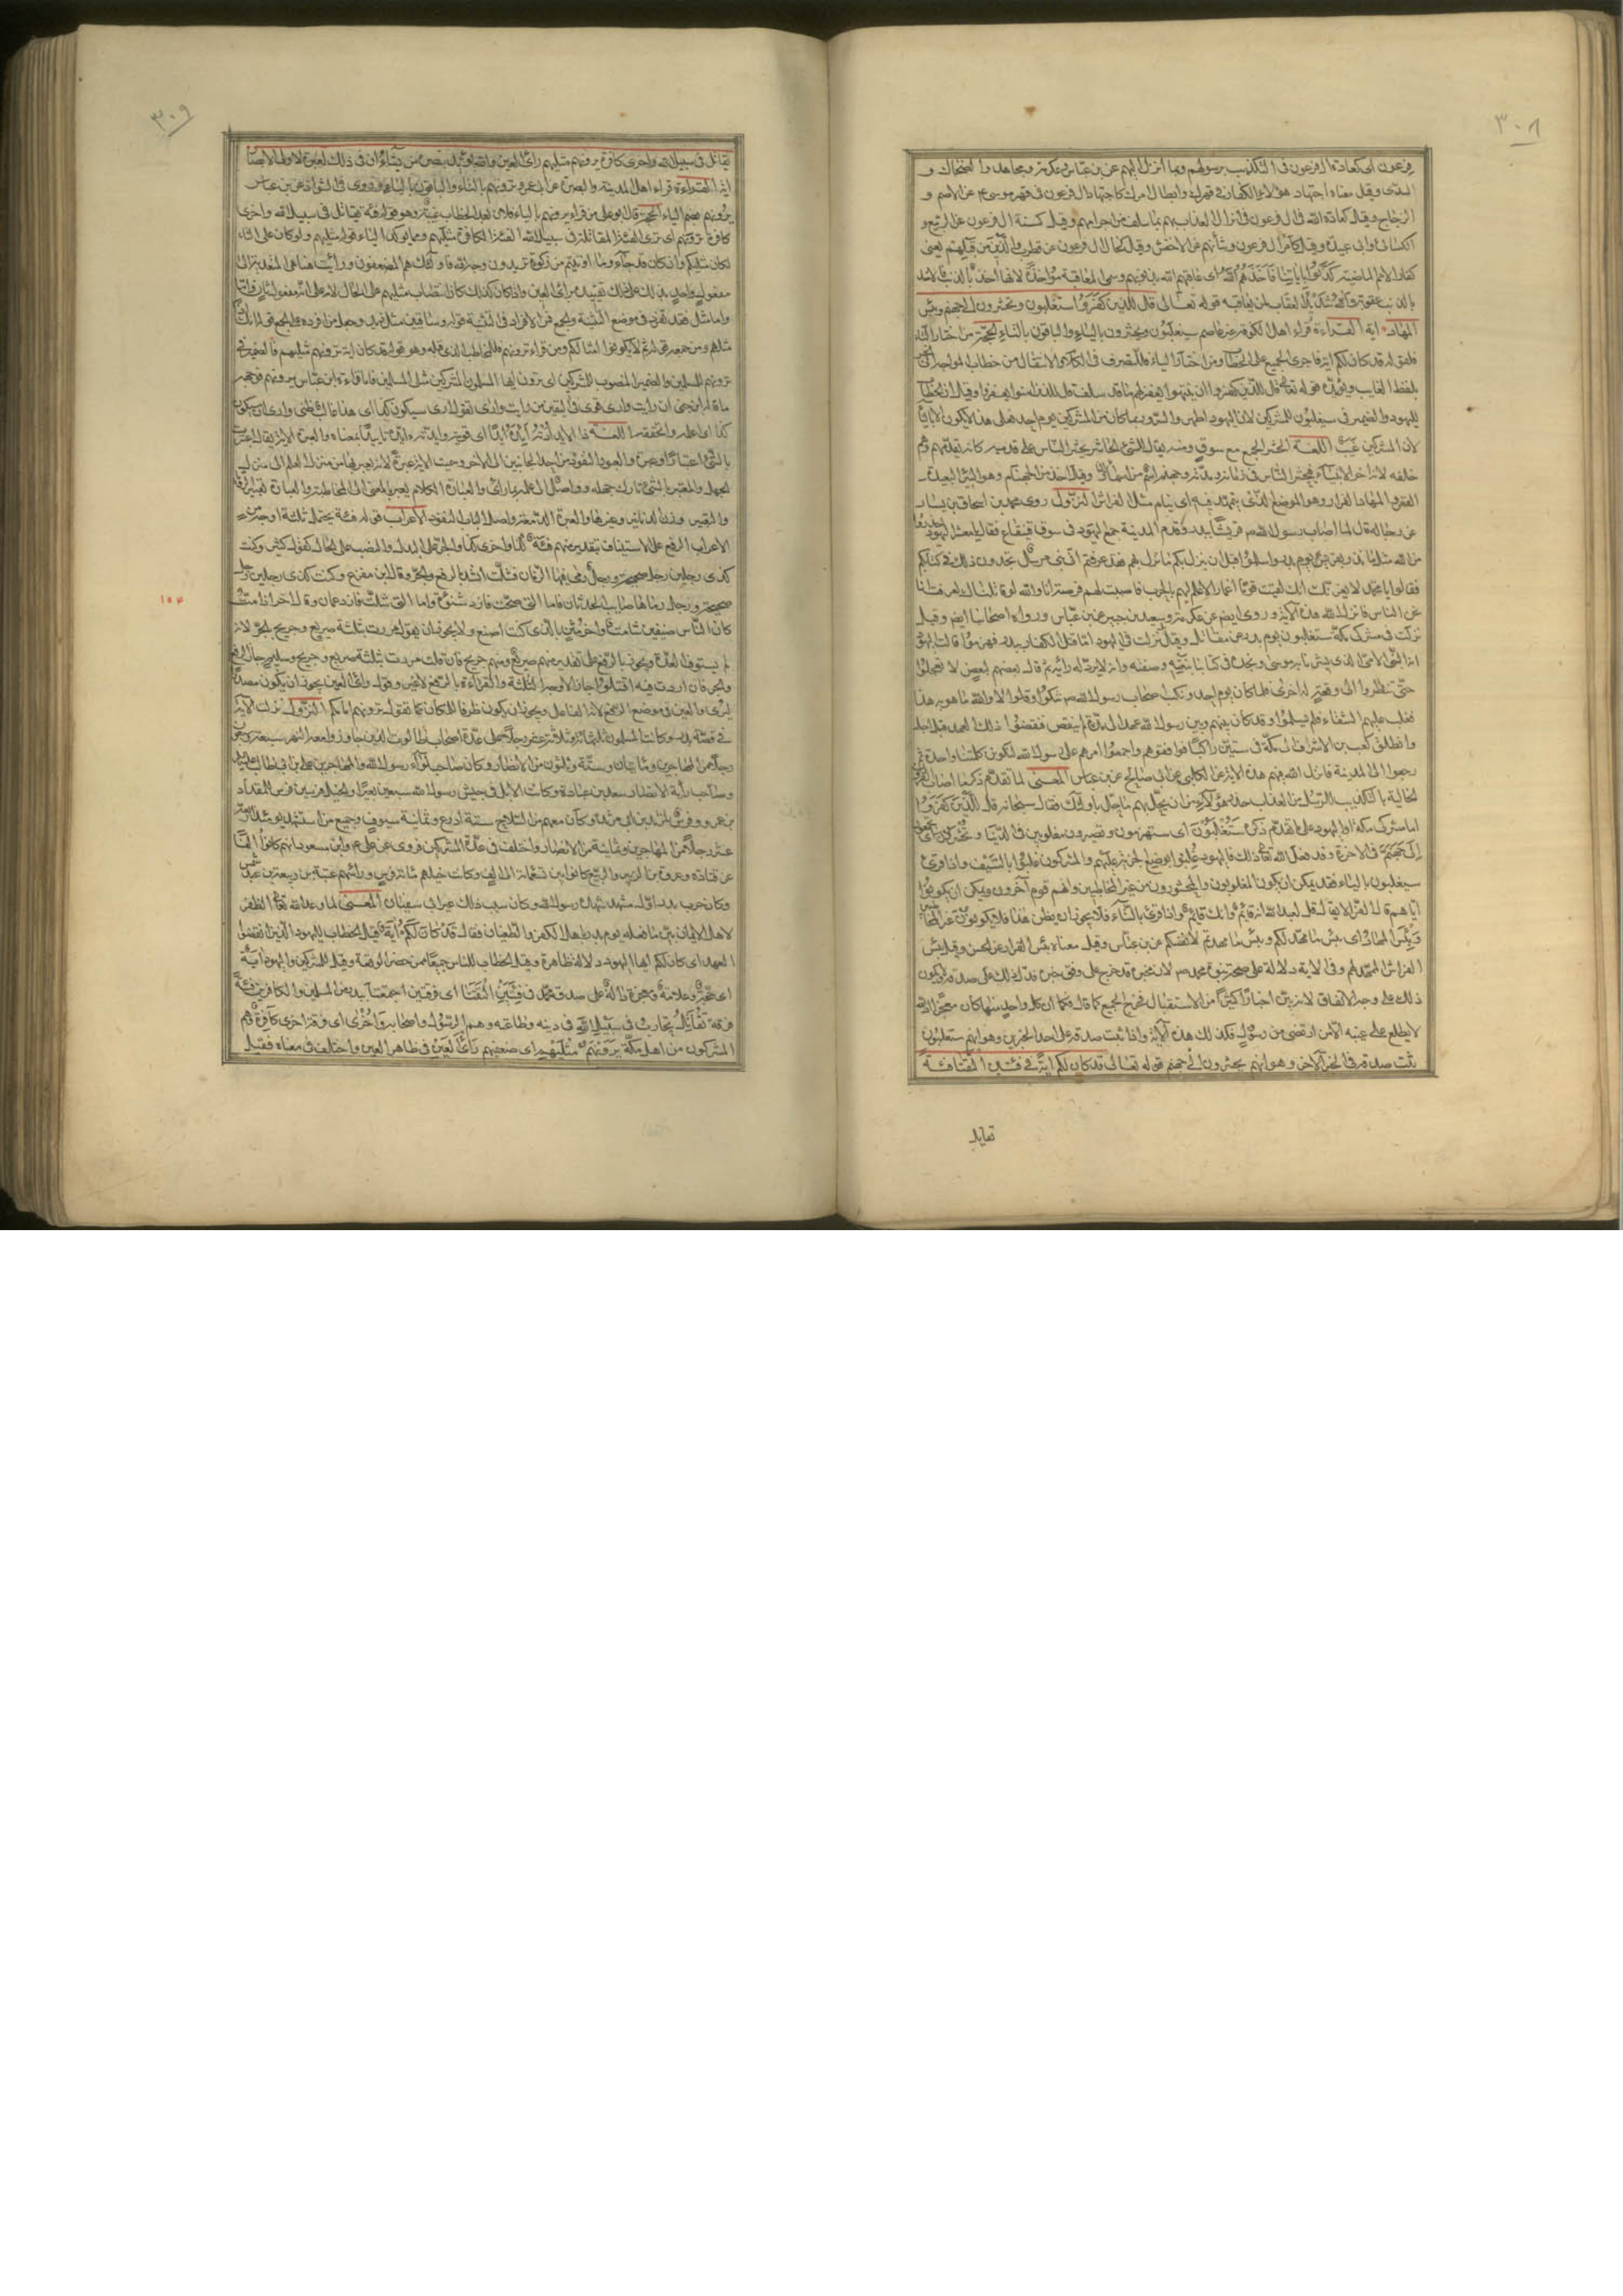 ٣٠٨
فرعون اى كعادة ال فرعون فى التكذيب برسولهم وبما انزل اليهم عن بن عباس وعكرمة ومجاهد والضحاك و
السدى وقيل معناه اجتهاد هؤلاء الكفار فى قهرك وابطال امرك كاجتهاد ال فرعون فى قهر موسى ع عن الاصم و
الزجاج وقيل كعادة الله فى ال فرعون فى انزال العذاب بهم بما سلف من اجرامهم وقيل كسنة ال فرعون عن الربيع و
الكسائى وابى عبيدة وقيل كامر ال فرعون وشأنهم عن الاخفش وقيل كحال ال فرعون عن قطرب والذين من قبلهم يعنى
كفار الامم الماضية كذبوا باياتنا فاخذهم الله اى عاقبهم الله بذنوبهم وسمى المعاقبة مؤاخذة لانها اخذ بالذنب والاخذ
بالذنب عقوبة والله شديد العقاب لمن يعاقبه قوله تعالى قل للذين كفروا ستغلبون وتحشرون الى جهنم وبئس
المهاد اية القراءة قراء اهل الكوفة غير عاصم سيغلبون ويحشرون بالياء والباقون بالتاء الحجة من اختار التاء
فلقوله قد كان لكم اية فاجرى الجميع على الخطاب ومن اختار الياء فللتصرف فى الكلام والانتقال من خطاب المواجه الى الخبر
بلفظ الغايب ويؤيده قوله تعالى قل للذين كفروا ان ينتهوا يغفر لهم ما قد سلف قل للذين امنوا يغفروا وقيل ان الخطاب
لليهود والضمير فى سيغلبون للمشركين لان اليهود اظهروا السرور بما كان من المشركين يوم احد فعلى هذا لا يكون الا بالياء
لان المشركين غيب اللغة الحشر الجمع مع سوق ومنه يقال للنبى الحاشر يحشر الناس على قدميه كانه يقدمهم وهم
خلفه لانه اخر الانبياء فيحشر الناس فى زمانه وملته وجهنم اسم من اسماء النار وقيل اخذ من الجهنام وهو البئر البعيدة
القعر والمهاد القرار وهو الموضع الذى يتمهد فيه اى ينام مثل الفراش النزول روى محمد بن اسحاق بن يسار
عن رجاله قال لما اصاب رسول الله ص قريشا ببدر وقدم المدينة جمع اليهود فى سوق قينقاع فقال يا معشر اليهود احذروا
من الله مثل ما نزل بقريش يوم بدر واسلموا قبل ان ينزل بكم ما نزل بهم فقد عرفتم انى نبى مرسل تجدون ذلك فى كتابكم
فقالوا يا محمد لا يغرنك انك لقيت قوما اغمارا لا علم لهم بالحرب فاصبت لهم فرصة انا والله لو قاتلناك لعرفت انا
نحن الناس فانزل الله هذه الاية وروى ايضا عن عكرمة وسعيد بن جبير عن بن عباس ورواه اصحابنا ايضا وقيل
نزلت فى مشركى مكة ستغلبون يوم بدر عن مقاتل وقيل نزلت فى اليهود لما قتل الكفار ببدر فهزموا قالت اليهود
انه النبى الامى الذى بشرنا به موسى ونجده فى كتابنا بنعته وصفته وانه لا يرد له راية ثم قال بعضهم لبعض لا تعجلوا
حتى تنظروا الى وقعة له اخرى فلما كان يوم احد ونكب اصحاب رسول الله ص شكوا وقالوا لا والله ما هو به هذا
فغلب عليهم الشقاء فلم يسلموا وقد كان بينهم وبين رسول الله عهد الى مدة لم ينقض فنقضوا ذلك العهد قبل اجله
وانطلق كعب بن الاشرف الى مكة فى ستين راكبا فوافقوهم واجمعوا امرهم على رسول الله لتكون كلمتنا واحدة ثم
رجعوا الى المدينة فانزل الله فيهم هذه الاية عن الكلبى عن ابى صالح عن بن عباس المعنى لما تقدم ذكر ما اصاب القرون
الخالية بالتكذيب بالرسل من العذاب حذر هؤلاء من ان يحل بهم ما حل باولئك فقال سبحانه قل للذين كفروا
اما مشركى مكة او اليهود على ما تقدم ذكره ستغلبون اى ستهزمون وتصيرون مغلوبين فى الدنيا وتحشرون اى تجمعون
الى جهنم فى الاخرة وقد فعل الله تعالى ذلك فاليهود غلبوا بوضع الجزية عليهم والمشركون غلبوا بالسيف واذا قرئ
سيغلبون بالياء فقد يمكن ان يكون المغلوبون والمحشورون من غير المخاطبين وانهم قوم آخرون ويمكن ان يكونوا
اياهم قال الفراء يقال قل لعبد الله انه قائم وانك قائم واذا قرئ بالتاء فلا يجوز ان يظن هذا فلا يكونون غير المخاطبين
وبئس المهاد اى بئس ما مهد لكم وبئس ما مهدتم لانفسكم عن بن عباس وقيل معناه بئس القرار عن الحسن وقيل بئس
الفراش الممهد لهم وفى الاية دلالة على صحة نبوة محمد ص لان مخبره قد خرج على وفق خبره فدل ذلك على صدقه ولا يكون
ذلك على وجه الاتفاق لانه بين اخبارا كثيرة من الاستقبال فخرج الجميع كما قال فكما ان كل واحد منها كان معجزا اذ الله
لا يطلع على غيبه الا من ارتضى من رسول فكذلك هذه الاية واذا ثبت صدقه على احد الخبرين وهو انهم ستغلبون
ثبت صدقه فى الخبر الاخر وهو انهم يحشرون الى جهنم قوله تعالى قد كان لكم اية فى فئتين التقتا فئة
تقاتل
٣٠٩
تقاتل فى سبيل الله واخرى كافرة يرونهم مثليهم رأى العين والله يؤيد بنصره من يشاء ان فى ذلك لعبرة لاولى الابصار
اية القراءة قراء اهل المدينة والبصرة عن ابى عمرو ترونهم بالتاء والباقون بالياء وروى فى الشواذ عن بن عباس
يرونهم بضم الياء الحجة قال ابو على من قراء يرونهم بالياء فلان بعد الخطاب غيبة وهو قوله فئة تقاتل فى سبيل الله واخرى
كافرة ترونهم اى ترى الفئة المقاتلة فى سبيل الله الفئة الكافرة مثليهم ومما يؤكد الياء قوله مثليهم ولو كان على التاء
لكان مثليكم وان كان قد جاء وما اوتيتم من زكوة تريدون وجه الله فاولئك هم المضعفون ورأيت هنا هى المتعدية الى
مفعول واحد يدلك على ذلك تقييده برأى العين واذا كان كذلك كان انتصاب مثليهم على الحال لا على انه مفعول ثان
واما مثل فقد تفرد فى موضع التثنية والجمع فمن الافراد فى التثنية قوله وساقيين مثل زبد وجعل ومن افراده فى الجمع قوله انكم اذا
مثلهم ومن جمعه قوله ثم لا يكونوا امثالكم ومن قراء ترونهم فللخطاب الذى قبله وهو قوله قد كان لكم اية ترونهم مثليهم فالضمير فى
ترونهم للمسلمين والضمير المنصوب للمشركين اى ترون ايها المسلمون المشركين مثلى المسلمين فاما قراءة ابن عباس يرونهم فوجهه
ما قاله ابن جنى ان رأيت وارى اقوى فى اليقين من رايت وارى تقول ارى سيكون كذا اى هذا غالب ظنى وارى ان سيكون
كذا اى اعلمه واتحققه اللغة
بالشئ اعتبارا وعبرة والعبور النفوذ من احد الجانبين الى الاخر وسميت الاية عبرة لانه يعبر بها من منزلة العلم الى منزلة
الجهل والمعتبر بالشئ تارك جهله وواصل الى علمه بما رأى والعبارة الكلام يعبر بالمعنى الى المخاطب والعبارة تفسير الرؤيا
والتعبير وزن الدنانير وغيرها والعبرة الدمعة واصل الباب النفوذ الاعراب قوله فئة يحتمل ثلثة اوجه من
الاعراب الرفع على الاستيناف بتقدير منهم فئة كذا واخرى كذا والجر على البدل والنصب على الحال كقول كثير وكنت
كذى رجلين رجل صحيحة ورجل رمى فيها الزمان فشلت انشد بالرفع والجر وقال ابن مفرغ وكنت كذى رجلين رجل
صحيحة ورجل رماها صايب الحدثان فاما التى صحت فازد شنوءة واما التى شلت فازد عمان وقال اخر اذا مت
كان الناس صنفين شامت واخر مثن بالذى كنت اصنع ولا يجوز ان يقول مررت بثلثة صريع وجريح بالجر لانه
لم يستوف العدة ويجوز بالرفع على تقدير منهم صريع ومنهم جريح فان قلت مررت بثلثة صريع وجريح وسليم جاز الرفع
والجر فان زدت فيه اقتتلوا جاز الاوجه الثلثة والقراءة بالرفع لا غير وقوله رأى العين يجوز ان يكون مصدرا
ليرى والعين فى موضع الرفع لانه الفاعل ويجوز ان يكون ظرفا للمكان كما تقول ترونهم امامكم النزول نزلت الاية
فى قصة بدر وكانت المسلمون ثلثمائة وثلاثة عشر رجلا على عدة اصحاب طالوت الذين جاوزوا معه النهر سبعة وسبعون
رجلا من المهاجرين ومايتان وستة وثلثون من الانصار وكان صاحب لواء رسول الله والمهاجرين على بن ابى طالب
وصاحب راية الانصار سعد بن عبادة وكانت الابل فى جيش رسول الله سبعين بعيرا والخيل فرسين فرس للمقداد
بن عمرو وفرس لمرثد بن ابى مرثد وكان معهم من السلاح ستة ادرع وثمانية سيوف وجميع من استشهد يومئذ اربعة
عشر رجلا من المهاجرين وثمانية من الانصار واختلف فى عدة المشركين فروى عن على ع وابن مسعود انهم كانوا الفا
عن قتادة وعروة بن الزبير والربيع كانوا بين تسعمائة الى الف وكانت خيلهم مائة فرس ورأسهم عتبة بن ربيعة بن عبد شمس
وكان حرب بدر اول مشهد شهده رسول الله وكان سبب ذلك عير ابى سفيان المعنى لما وعد الله تعالى الظفر
لاهل الايمان بين ما فعله يوم بدر باهل الكفر والطغيان فقال قد كان لكم اية قيل الخطاب لليهود الذين نقضوا
العهد اى كان لكم ايها اليهود دلالة ظاهرة وقيل الخطاب للناس جميعا ممن حضر الوقعة وقيل للمشركين واليهود اية
اى حجة وعلامة ومعجزة دالة على صدق محمد فى فئتين التقتا اى فرقتين اجتمعتا ببدر من المسلمين والكافرين فئة
فرقة تقاتل تحارب فى سبيل الله فى دينه وطاعته وهم الرسول واصحابه واخرى اى فرقة اخرى كافرة وهم
المشركون من اهل مكة يرونهم مثليهم اى ضعفهم رأى العين فى ظاهر العين واختلف فى معناه فقيل